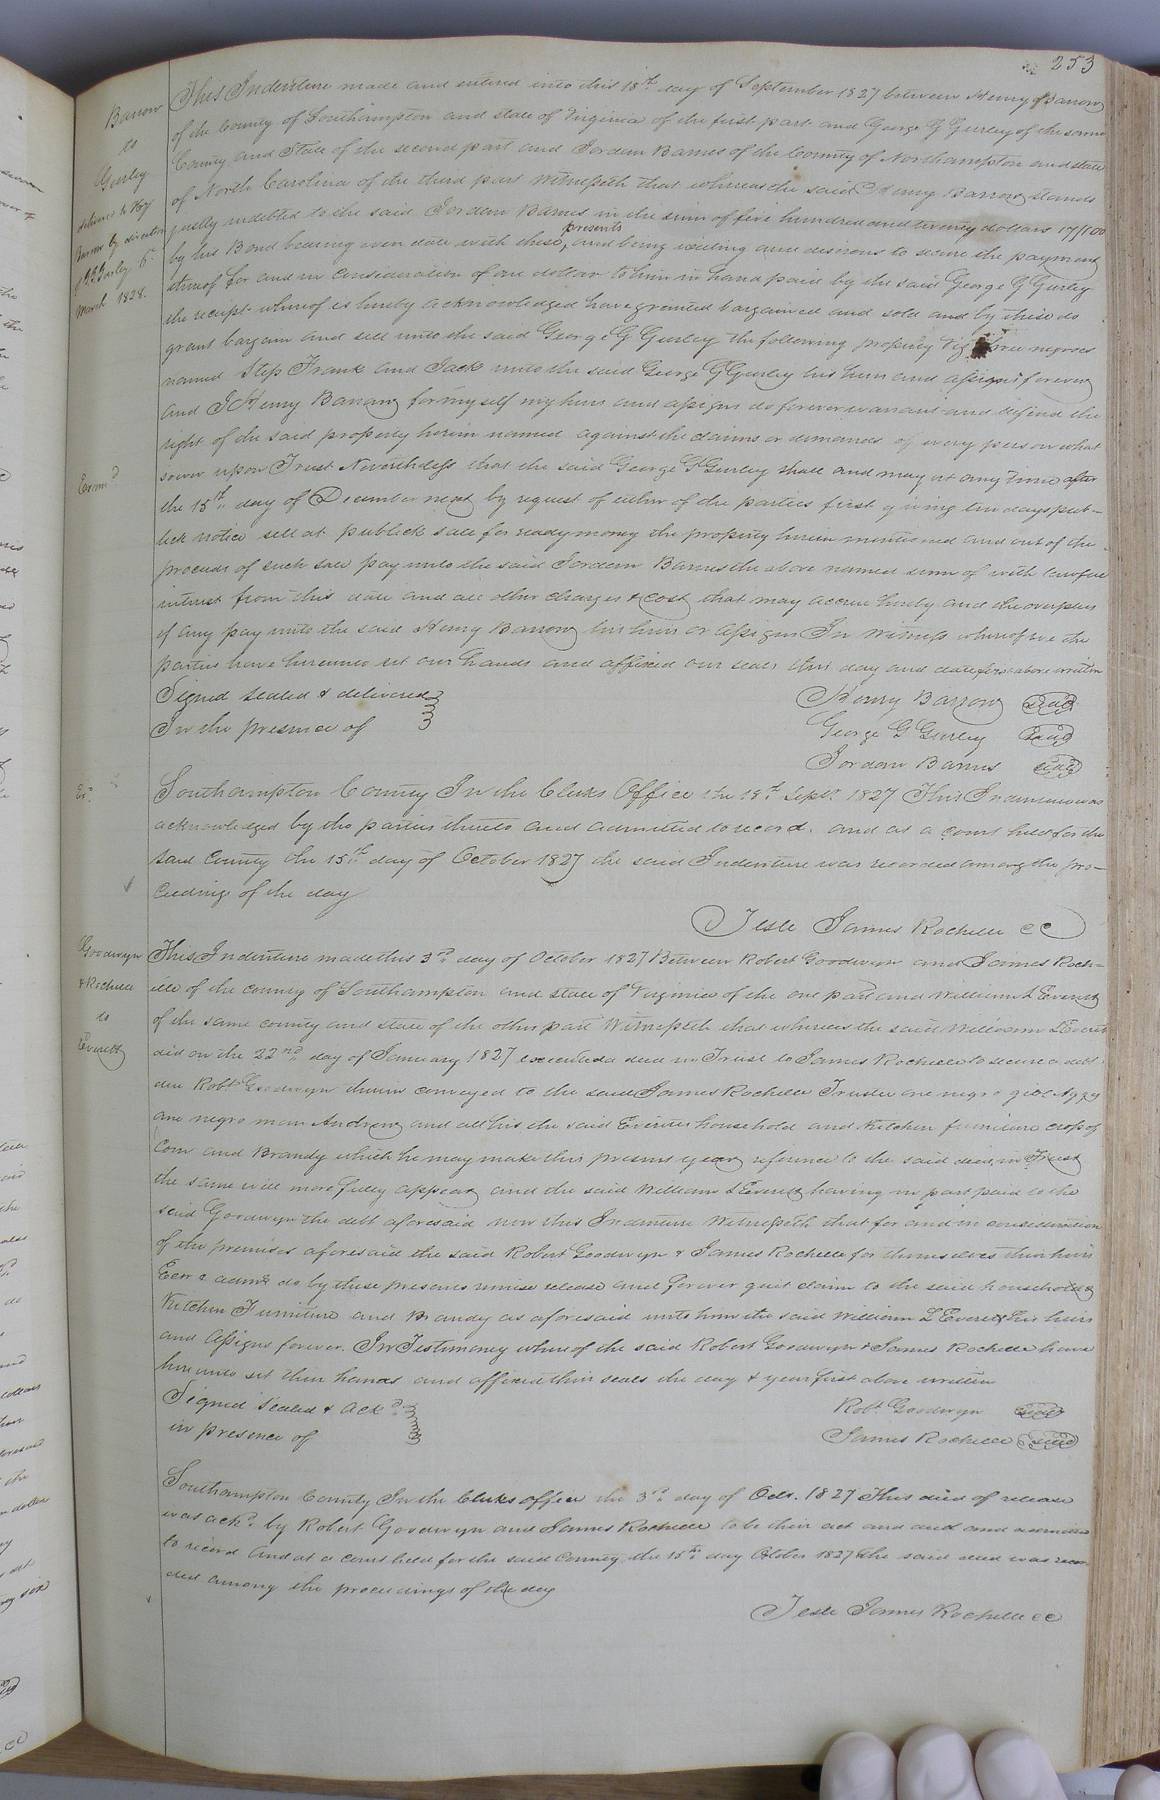 253
Barrow
to
Gurley
This Indenture made and entered into this 18th day of September 1827 between Henry Barrow
of the County of Southampton and state of Virginia of the first part and George G Gurley of the same
County and State of the second part and Jordan Barnes of the County of Northampton and state
of North Carolina of the third part Witnesseth that whereas the said Henry Barrow stands
justly indebted to the said Jordan Barnes in the sum of five hundred and twenty dollars 17/100
by his Bond bearing even date with these presents, and being willing and desirous to secure the payment
thereof for and in consideration of one dollar to him in hand paid by the said George G Gurley
the receipt whereof is hereby acknowledged have granted bargained and sold and by these do
grant bargain and sell unto the said George G Gurley the following property Viz three negroes
named Frank and Jack unto the said George G Gurley his heirs and assigns forever
and I Henry Barrow for myself my heirs and assigns do forever warrant and defend the
right of the said property herein named against the claims or demands of every person what
soever upon Trust Nevertheless that the said George G Gurley shall and may at any time after
the 15th day of December next by request of either of the parties first giving ten days pub-
lick notice sell at publick sale for ready money the property herein mentioned and out of the
proceeds of such sale pay unto the said Jordan Barnes the above named sum of with lawful
interest from this date and all other charges & cost that may accrue hereby and the overplus
if any pay unto the said Henry Barrow his heirs or assigns In Witness whereof we the
parties have hereunto set our hands and affixed our seals this day and date first above written
Signed Sealed & delivered
In the presence of
Henry Barrow seal
George G Gurley seal
Jordan Barnes seal
March 1828.
Exmd
Southampton County In the Clerks Office the 18th Sept. 1827 This Indenture was
acknowledged by the parties thereto and admitted to record. and at a court held for the
said County the 15th day of October 1827 the said Indenture was recorded among the pro-
ceedings of the day
Teste James Rochelle CC
Goodwyn
& Rochelle
to
Everett
This Indenture made this 3rd day of October 1827 Between Robert Goodwyn and James Roch-
elle of the county of Southampton and state of Virginia of the one part and William L Everett
of the same county and state of the other part Witnesseth that whereas the said William L Everett
did on the 22nd day of January 1827 executed a deed in Trust to James Rochelle to secure a debt
due Robt Goodwyn therein conveyed to the said James Rochelle Trustee one negro girl Aggy
one negro man Andrew and all his the said Everetts household and Kitchen furniture crop of
Corn and Brandy which he may make this present year reference to the said deed in Trust
the same will more fully appear and the said William L Everett having in part paid to the
said Goodwyn the debt aforesaid now this Indenture Witnesseth that for and in consideration
of the premises aforesaid the said Robert Goodwyn & James Rochelle for themselves their heirs
Exors & admrs do by these presents remise release and forever quit claim to the said household &
Kitchen Furniture and Brandy as aforesaid unto him the said William L Everett his heirs
and assigns forever. In Testimony whereof the said Robert Goodwyn & James Rochelle have
hereunto set their hands and affixed their seals the day & year first above written
Signed Sealed & Ackd
in presence of
Robt Goodwyn seal
James Rochelle seal
Southampton County In the Clerks office the 3rd day of Octr. 1827 This deed of release
was ackd by Robert Goodwyn and James Rochelle to be their act and deed and admitted
to record And at a court held for the said County the 15th day October 1827 the said deed was recor
ded among the proceedings of the day
Teste James Rochelle CC